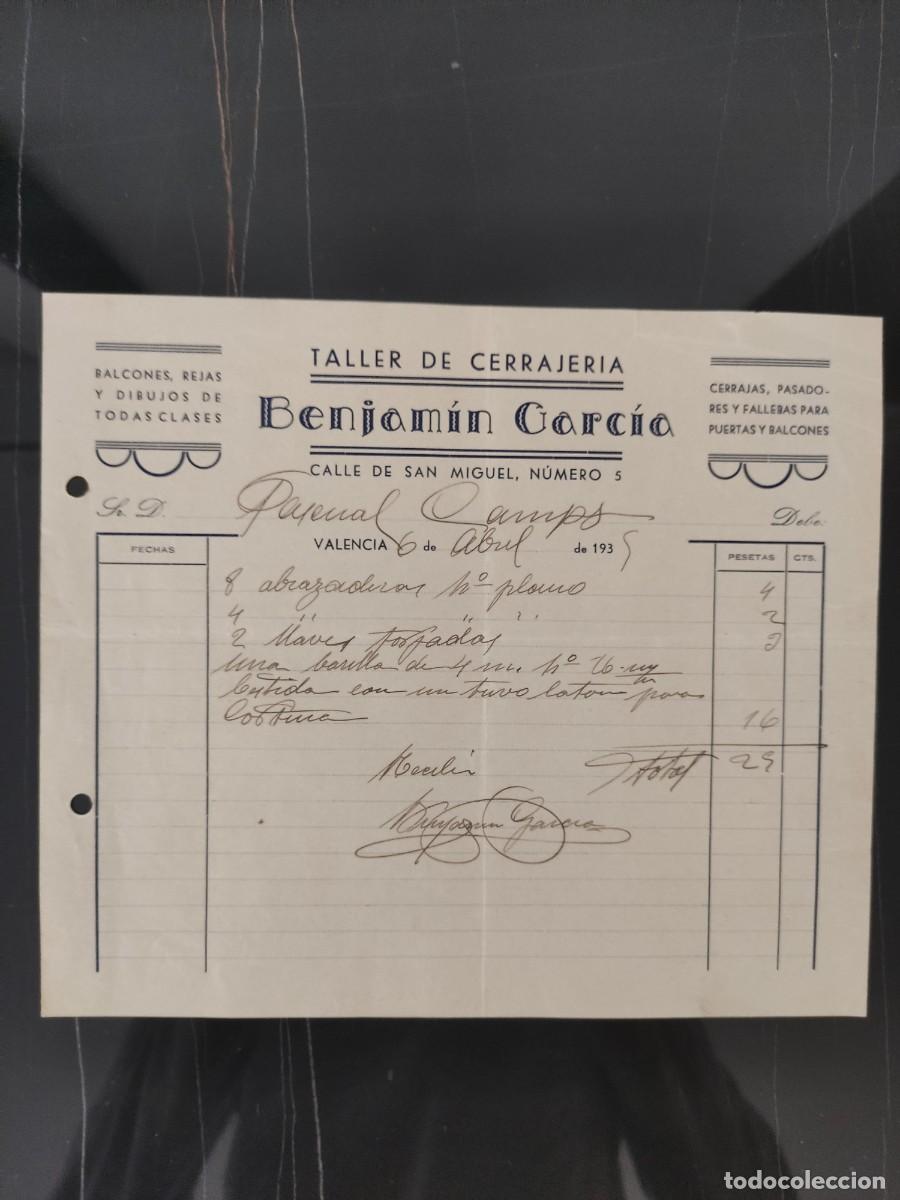 TALLER DE CERRAJERIA
BALCONES, REJAS
Y DIBUJOS DE
TODAS CLASES
Benjamín García
CERRAJAS, PASADO-
RES Y FALLEBAS PARA
PUERTAS Y BALCONES
CALLE DE SAN MIGUEL, NÚMERO 5
Sr. D. Pascual Camps Debe:
VALENCIA 6 de Abril de 1935
FECHAS PESETAS CTS.
8 abrazaderas hº plano 4
4 " " " 2
2 llaves forjadas 2
una barilla de 4 m. hº 16
bestida con un tuvo laton para
Cortina 16
Recibi total
Benjamin Garcia
todocoleccion